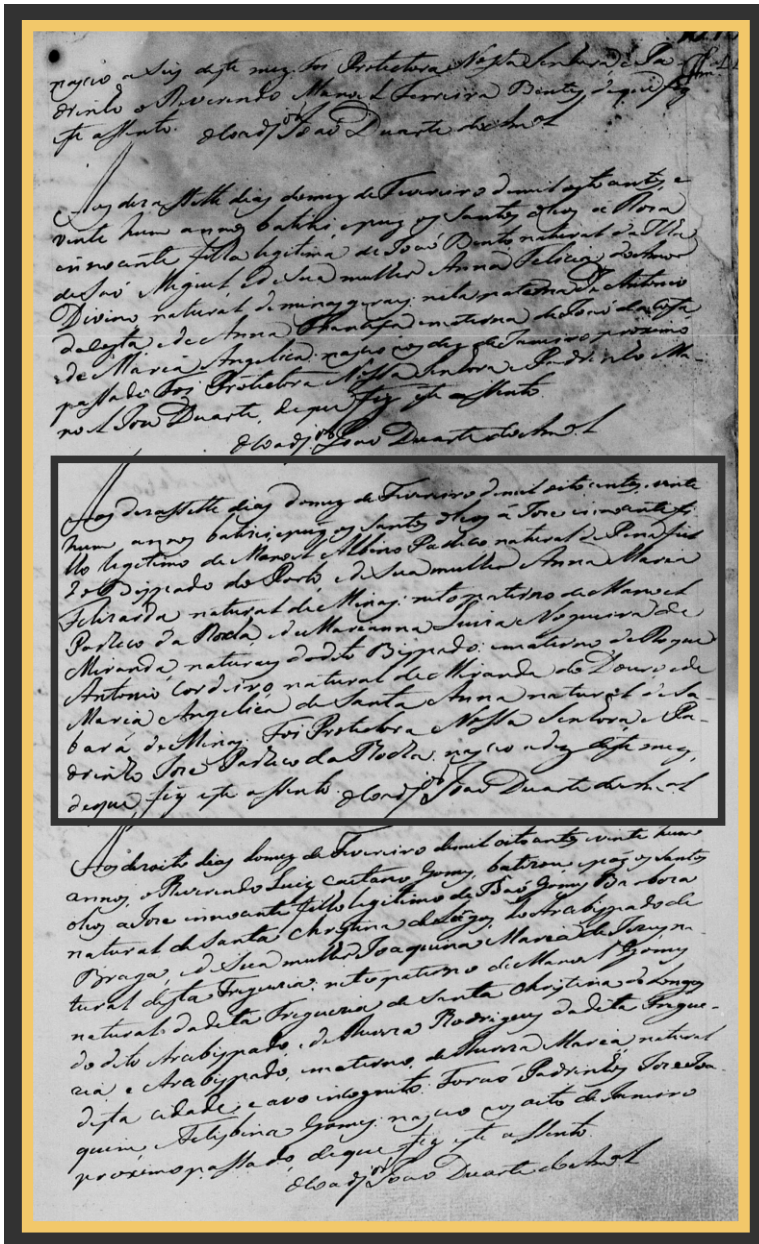 nasceo a seis deste mez. Foi Protectora Nossa Senhora e Pa
drinho o Reverendo Manoel Ferreira Bentes, de que fiz
este assento. O Coadj.or João Duarte
Aos dezassette dias do mez de Fevereiro de mil oito centos, e
vinte hum annos baptizei, e puz os Santos oleos a Roza
innocente filha legitima de João Bento, natural da Ilha
de São Miguel e de sua mulher Anna Felicia do Amor
Divino natural de minas geraes: neta paterna de Antonio
e de Anna e materna de José da Costa
e de Maria Angelica: nasceo aos dez de Janeiro proximo
passado Foi Protectora Nossa Senhora e Padrinho Ma-
noel José Duarte, de que fiz este assento.
O Coadj.or João Duarte
Aos dezassette dias do mez de Fevereiro de mil oito centos, vinte
hum annos baptizei, e puz os Santos oleos á José innocente fi
lho legitimo de Manoel Albino Pacheco natural de Penafiel
do Bispado do Porto e de sua mulher Anna Maria
Felizarda natural de Minas: neto paterno de Manoel
Pacheco da Rocha, e de Marianna Luiza Nogueira de
Miranda, naturaes do dito Bispado: e materno de Roque
Antonio Cordeiro, natural de Miranda do Douro, e de
Maria Angelica de Santa Anna natural de Sa-
bará de Minas. Foi Protectora Nossa Senhora e Pa-
drinho José Pacheco da Rocha: nasceo a dez deste mez,
de que fiz este assento. O Coadj.or João Duarte
Aos dezoito dias do mez de Fevereiro de mil oito centos e vinte hum
annos, o Reverendo Luiz Caetano Gomes, batizou, e pôz os santos
oleos a José innocente filho legitimo de Gomes Barboza
natural de Santa Christina de Longos do Arcebispado de
Braga, e de sua mulher Joaquina Maria de Jesus na-
tural desta Freguezia: neto paterno de Manoel Gomes
natural da dita Freguezia de Santa Christina de Longos
do dito Arcebispado, e de Rodrigues da dita Fregue-
zia, e Arcebispado, e materno, de Maria natural
desta cidade, e avo incognito. Forão Padrinhos José Joa-
quim, e Felisbina Gomes: nasceo aos oito de Janeiro
proximo passado, de que fiz este assento.
O Coadj.or João Duarte